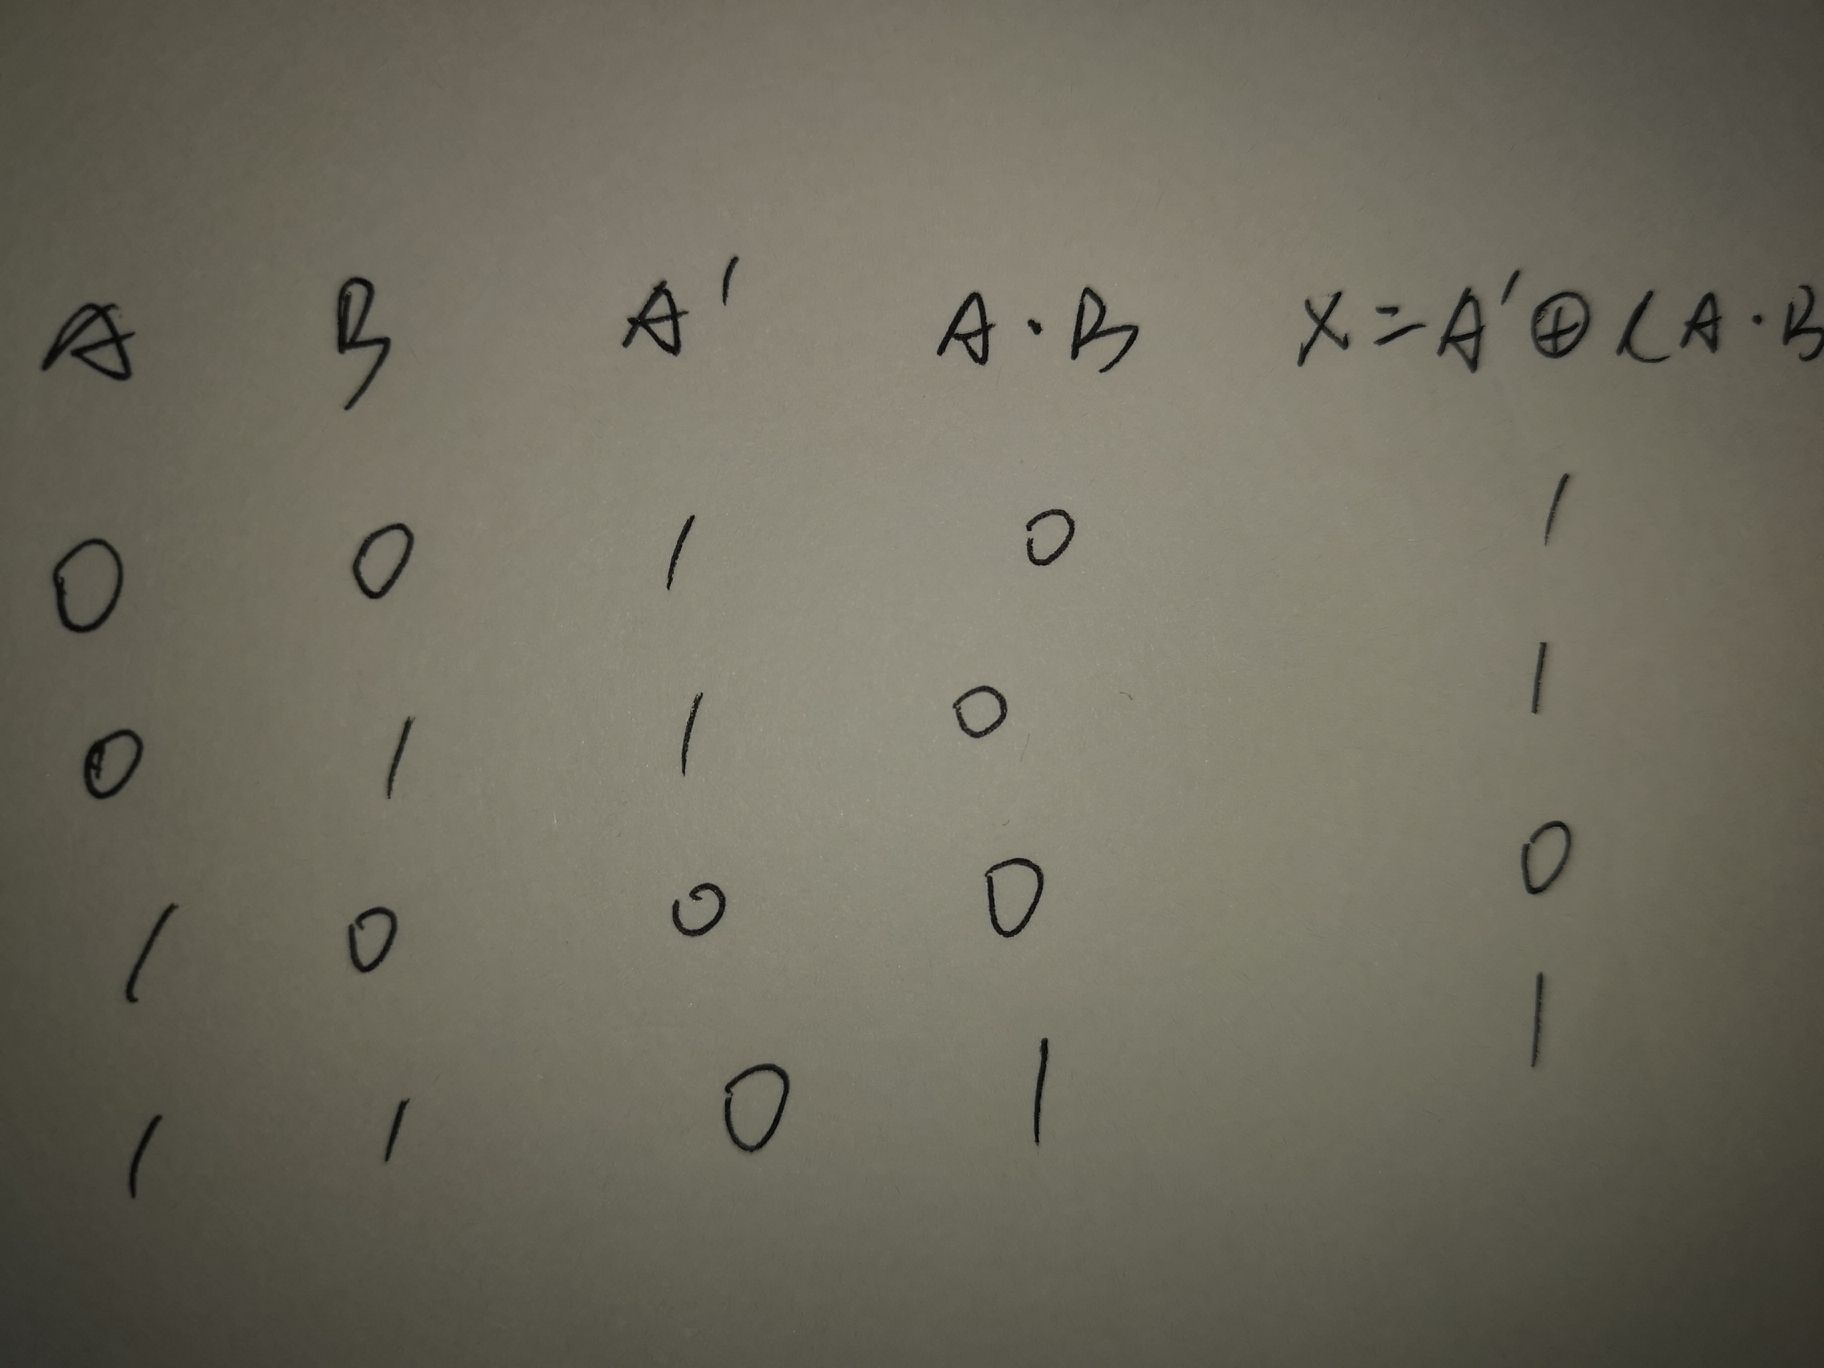 A B A' A·B X=A'⊕(A·B
0 0 1 0 1
0 1 1 0 1
1 0 0 0 0
1 1 0 1 1